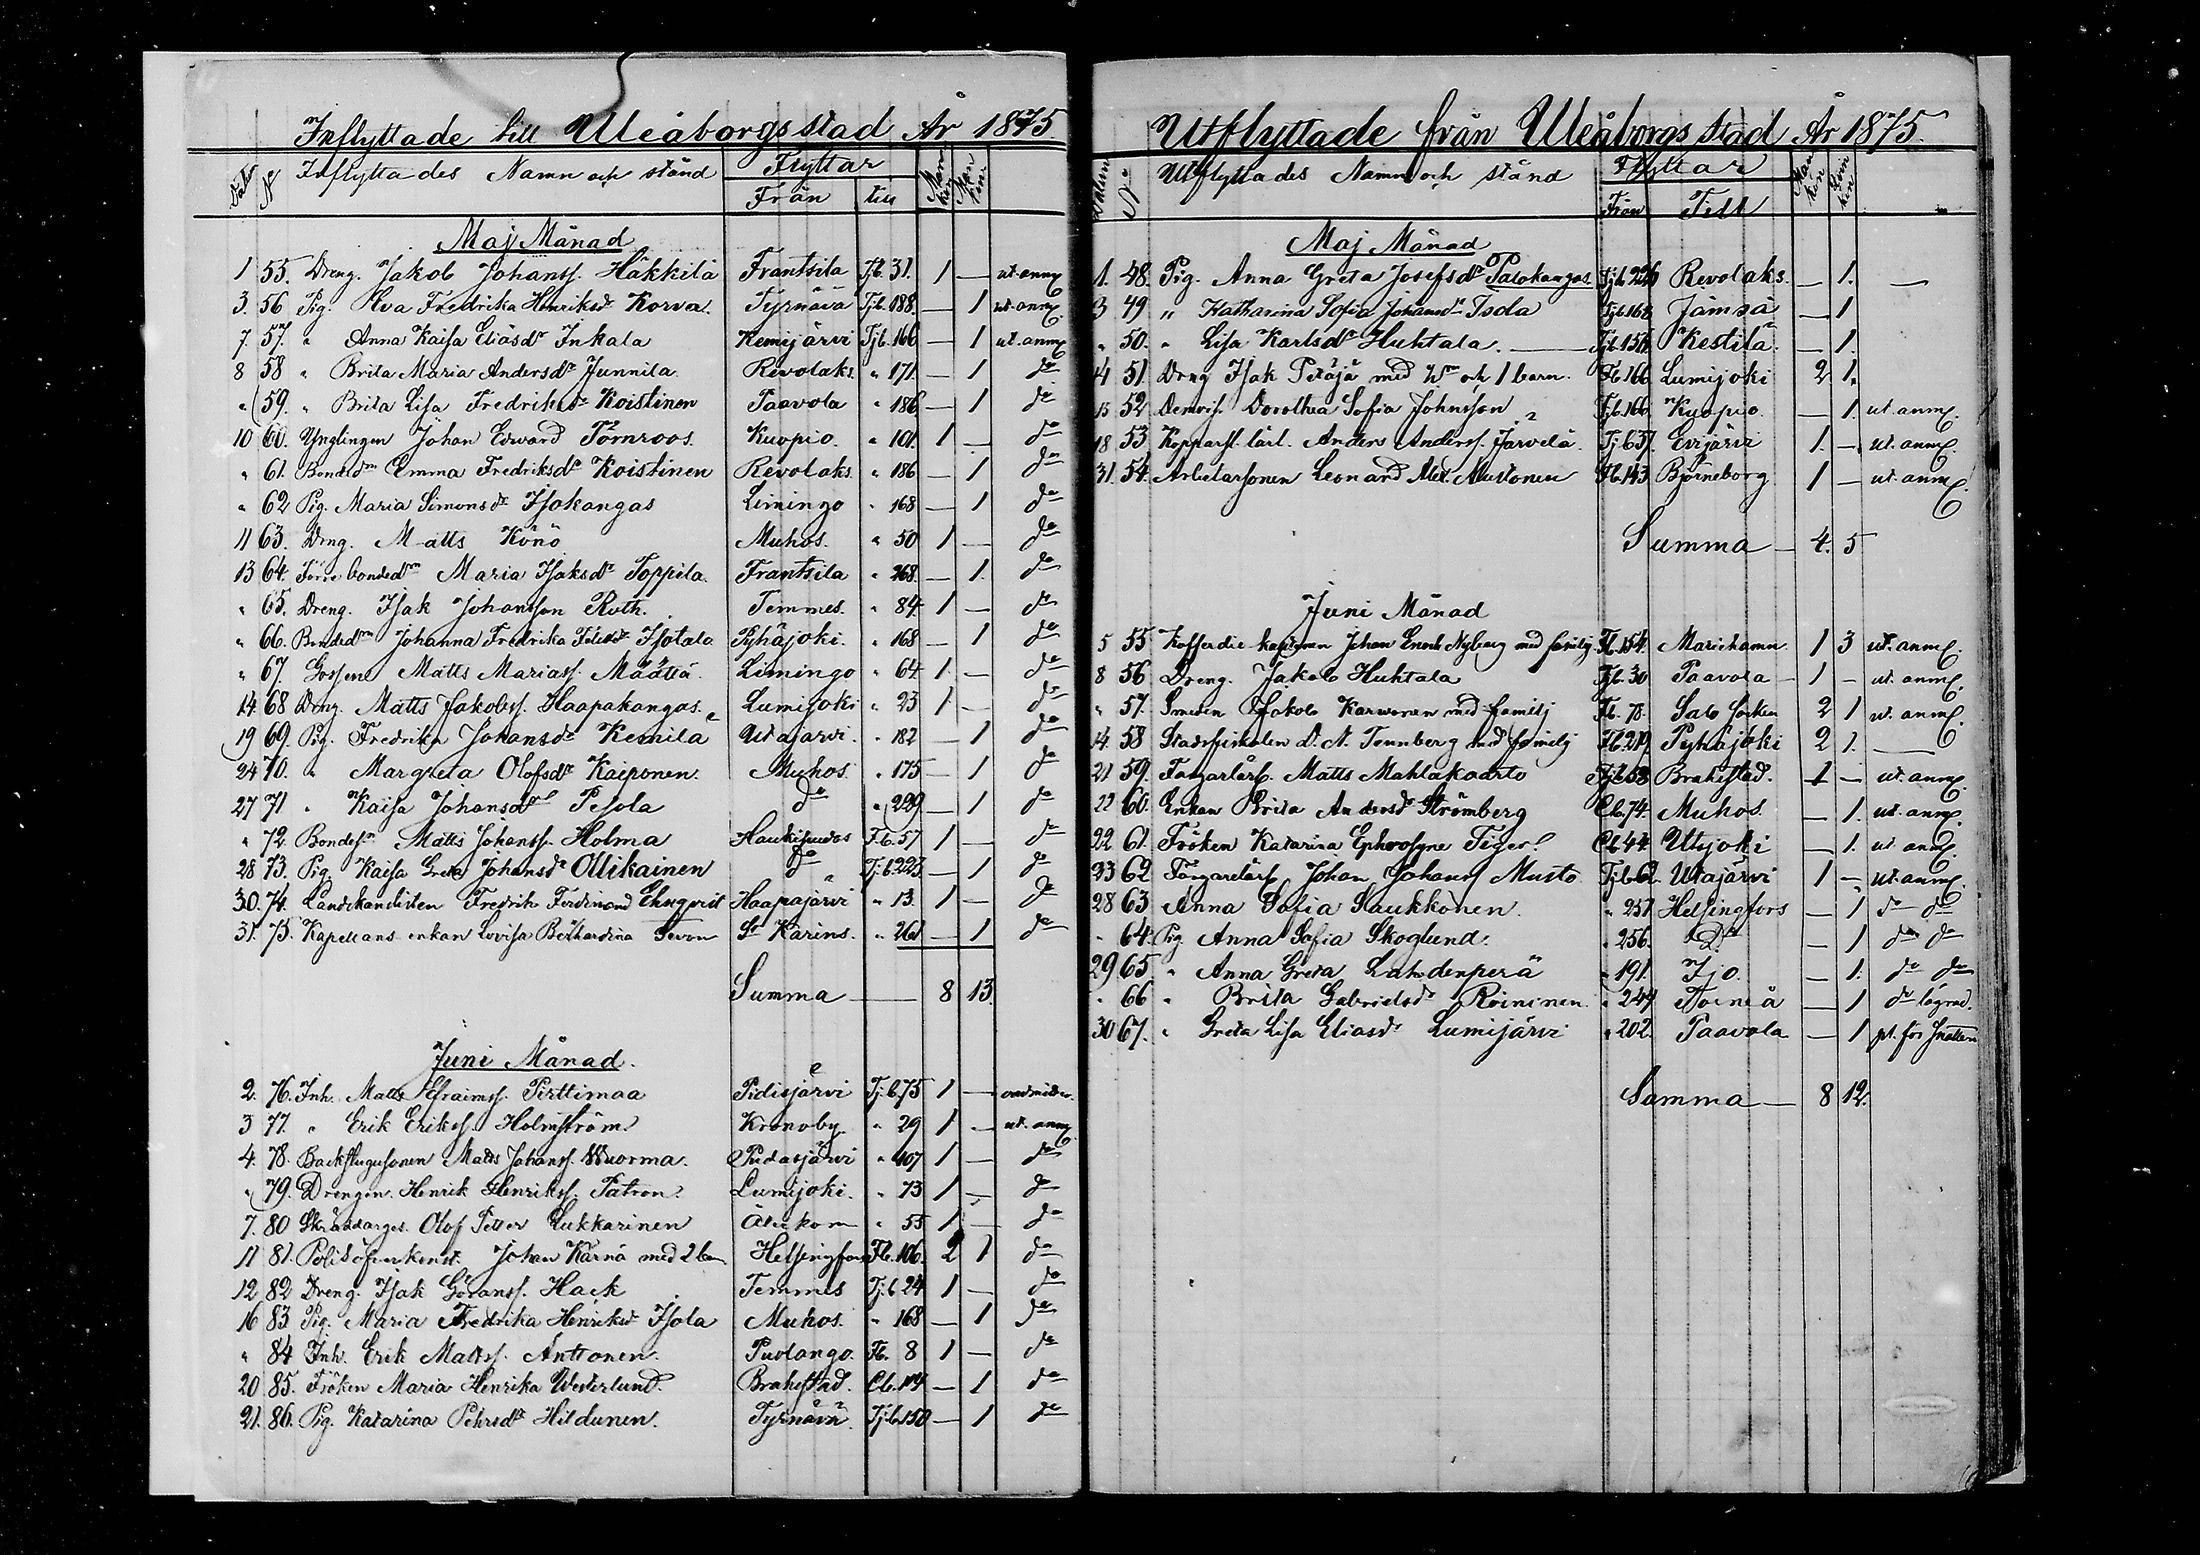 Inflyttade till Uleåborgs stad År 1875.
Datum No Inflyttades Namn och stånd Flyttar Från till Mankön Qvinkön
Maj Månad
1 55. Dreng. Jakob Johanss. Häkkilä Frantsila Tjb. 31. 1 — ut. anm.
3. 56 Pig. Eva Fredrika Henriksdr Korva. Tyrnävä Tjb. 188. — 1 ut. anm.
7. 57. " Anna Kaisa Eliäsdr Inkala Kemijärvi Tjb. 166 — 1 ut. anm.
8 58 " Brita Maria Andersdr Junnila. Revolaks. " 171 — 1 do
" 59. " Brita Lisa Fredriksdr Koistinen Paavola " 186 — 1 do
10 60. Ynglingen Johan Edward Törnroos. Kuopio. " 101. 1 — do
" 61. Bondedn Emma Fredriksdr Koistinen Revolaks " 186 — 1 do
" 62 Pig. Maria Simonsdr Isokangas Limingo " 168 — 1 do
11 63. Dreng. Matts Könö Muhos. " 50 1 — do
13 64. Förre bondedn Maria Isaksdr Toppila. Frantsila " 268. — 1. do
" 65. Dreng. Isak Johansson Ruth. Temmes. " 84 1 — do
" 66. Bondedn Johanna Fredrika Isotalo Pyhäjoki. " 168 — 1 do
" 67. Gossen Matts Mariass. Määttä. Limingo " 64. 1. — do
14. 68 Dreng. Matts Jakobss. Haapakangas. Lumijoki " 23 1 — do
19 69. Pig. Fredrika Johansdr Kemilä Utajärvi. " 182 — 1 do
24 70. " Margreta Olofsdr Kaiponen. Muhos. " 175 — 1 do
27 71 " Kaisa Johansdr Pesola do " 229 — 1 do
" 72. Bondes. Matts Johanss. Holma Haukipudas Fb. 57 1 — do
28 73. Pig. Kaisa Greta Johansdr Ollikainen do Tjb. 223. — 1 do
30. 74. Landskanslisten Fredrik Ferdinand Ehnqvist Haapajärvi " 13. 1 — do
31. 75. Kapellans enkan Lovisa Bernhardina Sevon St Karins. " 261 — 1 do
Summa — 8 13.
Juni Månad.
2. 76. Inh. Matts Efraimss. Pirttimaa Pidisjärvi Tjb. 75 1 —
3 77. " Erik Erikss. Holmström Kronoby " 29 1 — ut. anm.
4. 78. Backstugusonen Matts Johanss. Wuorma. Pudasjärvi " 407 1 — do
" 79. Drengen. Henrik Henrikss. Patron. Lumijoki. " 73 1 — do
7. 80 Skräddarges. Olof Petter Lukkarinen " 55 1 — do
11 81. Johan Kärnä med 2 barn Helsingfors Fb. 106. 2 1 do
12 82 Dreng. Isak Göranss. Hack Temmes Tjb 24 1 — do
16 83 Pig. Maria Fredrika Henriksdr Isola Muhos. " 168 — 1 do
" 84 Inh. Erik Matss. Anttonen. Puolango. Fb. 8 1 — do
20 85. Fröken Maria Henrika Westerlund. Brahestad. Cb. 114 — 1 do
21. 86. Pig. Katarina Pehrsdr Hildunen. Tyrnävä Tjb. 150 — 1 do
Utflyttade från Uleåborgs Stad År 1875.
Datum No Utflyttades Namn och stånd Flyttar Från Till Mankön Qvinkön
Maj Månad
1. 48. Pig. Anna Greta Josefsdr Palokangas. Tjb 226 Revolaks. — 1. —
3 49 " Katharina Sofia Johansdr Isola Tjb 168 Jämsä — 1
" 50. " Lisa Karlsdr Huhtala. — Tjb. 156 Kestilä. — 1.
4 51. Dreng Isak Petäjä med Hu och 1 barn. Fb. 166 Lumijoki 2 1.
15 52. Demois. Dorothea Sofia Johnsson Fb. 166. Kuopio. — 1 ut. anm.
18 53. Kopparsl. lärl. Anders Anderss. Järvelä. Tjb 37. Evijärvi 1. — ut. anm.
31. 54. Arbetarsonen Leonard Alex. Mustonen Fb. 143 Björneborg 1 — ut. anm.
Summa — 4. 5
Juni Månad
5 55 Kofferdie kaptenen Johan Enoch Nyberg med familj. Fb. 154. Mariehamn 1 3 ut. anm.
8 56 Dreng. Jakob Huhtala Tjb. 30 Paavola — 1 — ut. anm.
" 57. Smeden Jakob Karwonen med familj Fb. 78. Salo Socken 2 1 ut. anm.
14. 58 Stadsfiskalen A. N. Tennberg med familj Fb. 219 Pyhäjoki 2 1. —
21 59. Fargarlärl. Matts Mahlakaarto Tjb 58 Brahestad. 1 — ut. anm.
22 60. Enkan Brita Andersdr Strömberg Cb. 74. Muhos. — 1. ut. anm.
22 61. Fröken Katarina Ephrosyne Tigerl. Cb 44. Utsjoki — 1. ut. anm.
23 62. Färgarelärl. Johan Johanss Musto Tjb 62. Utajärvi 1 — ut. anm.
28 63 Anna Sofia Saukkonen. " 257 Helsingfors — 1 do do
" 64. Pig Anna Sofia Skoglund. " 256. Do — 1 do do
29 65. " Anna Greta Lahdenperä " 191. Ijo. — 1. do do
" 66 " Brita Gabrielsdr Röininen. " 244 Torneå — 1 do
30 67. " Greta Lisa Eliasdr Lumijärvi " 202. Paavola — 1
Summa — 8 12.